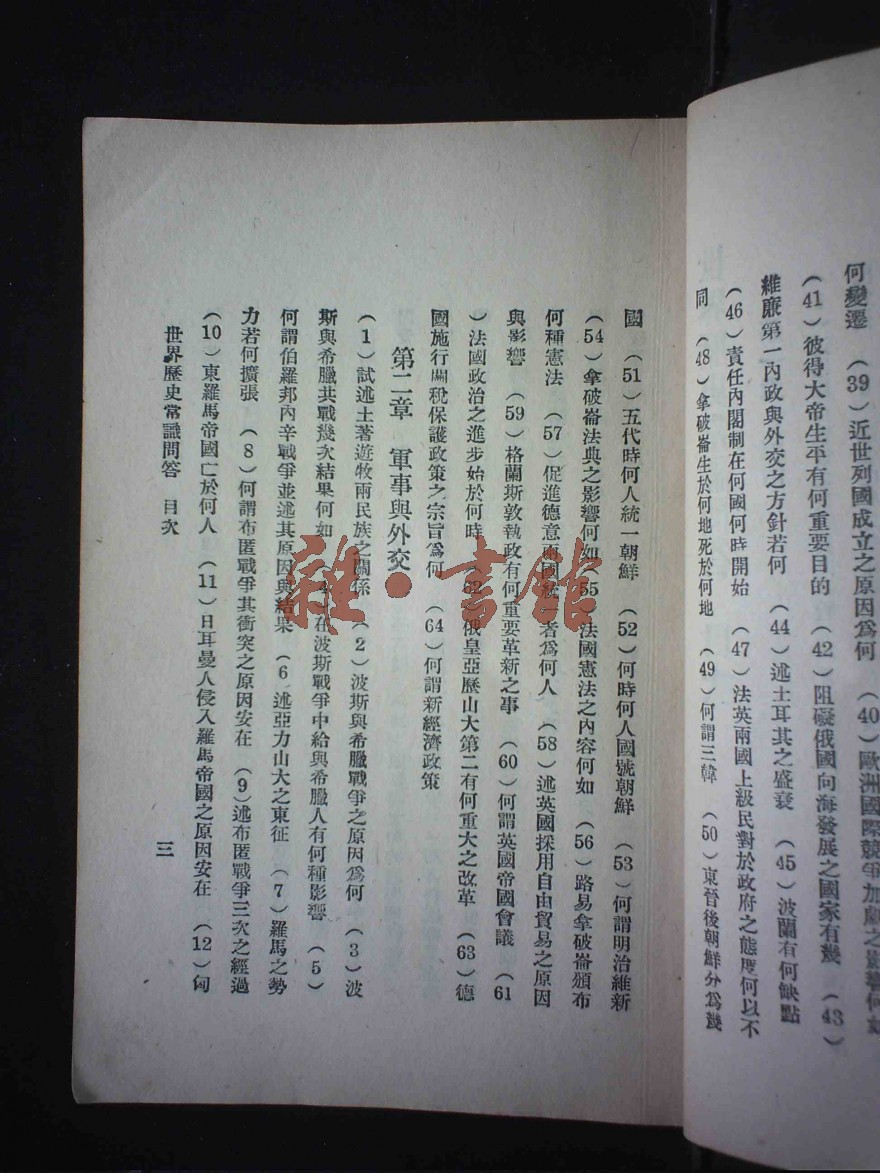 何變遷　（39）近世列國成立之原因爲何　（40）歐洲國際競爭加劇之影響何如
（41）彼得大帝生平有何重要目的　（42）阻礙俄國向海發展之國家有幾　（43）
維廉第一內政與外交之方針若何　（44）述土耳其之盛衰　（45）波蘭有何缺點
（46）責任內閣制在何國何時開始　（47）法英兩國上級民對於政府之態度何以不
同　（48）拿破崙生於何地死於何地　（49）何謂三韓　（50）東晉後朝鮮分爲幾
國　（51）五代時何人統一朝鮮　（52）何時何人國號朝鮮　（53）何謂明治維新
（54）拿破崙法典之影響何如（55）法國憲法之內容何如　（56）路易拿破崙頒布
何種憲法　（57）促進德意兩國統一者爲何人　（58）述英國採用自由貿易之原因
與影響　（59）格蘭斯敦執政有何重要革新之事　（60）何謂英國帝國會議　（61
）法國政治之進步始於何時　（62）俄皇亞歷山大第二有何重大之改革　（63）德
國施行關稅保護政策之宗旨爲何　（64）何謂新經濟政策
第二章　軍事與外交
（1）試述土著遊牧兩民族之關係　（2）波斯與希臘戰爭之原因爲何　（3）波
斯與希臘共戰幾次結果何如　（4）在波斯戰爭中給與希臘人有何種影響　（5）
何謂伯羅邦內辛戰爭並述其原因與結果　（6）述亞力山大之東征　（7）羅馬之勢
力若何擴張　（8）何謂布匿戰爭其衝突之原因安在　（9）述布匿戰爭三次之經過
（10）東羅馬帝國亡於何人　（11）日耳曼人侵入羅馬帝國之原因安在　（12）匈
世界歷史常識問答　目次
三
雜·書館